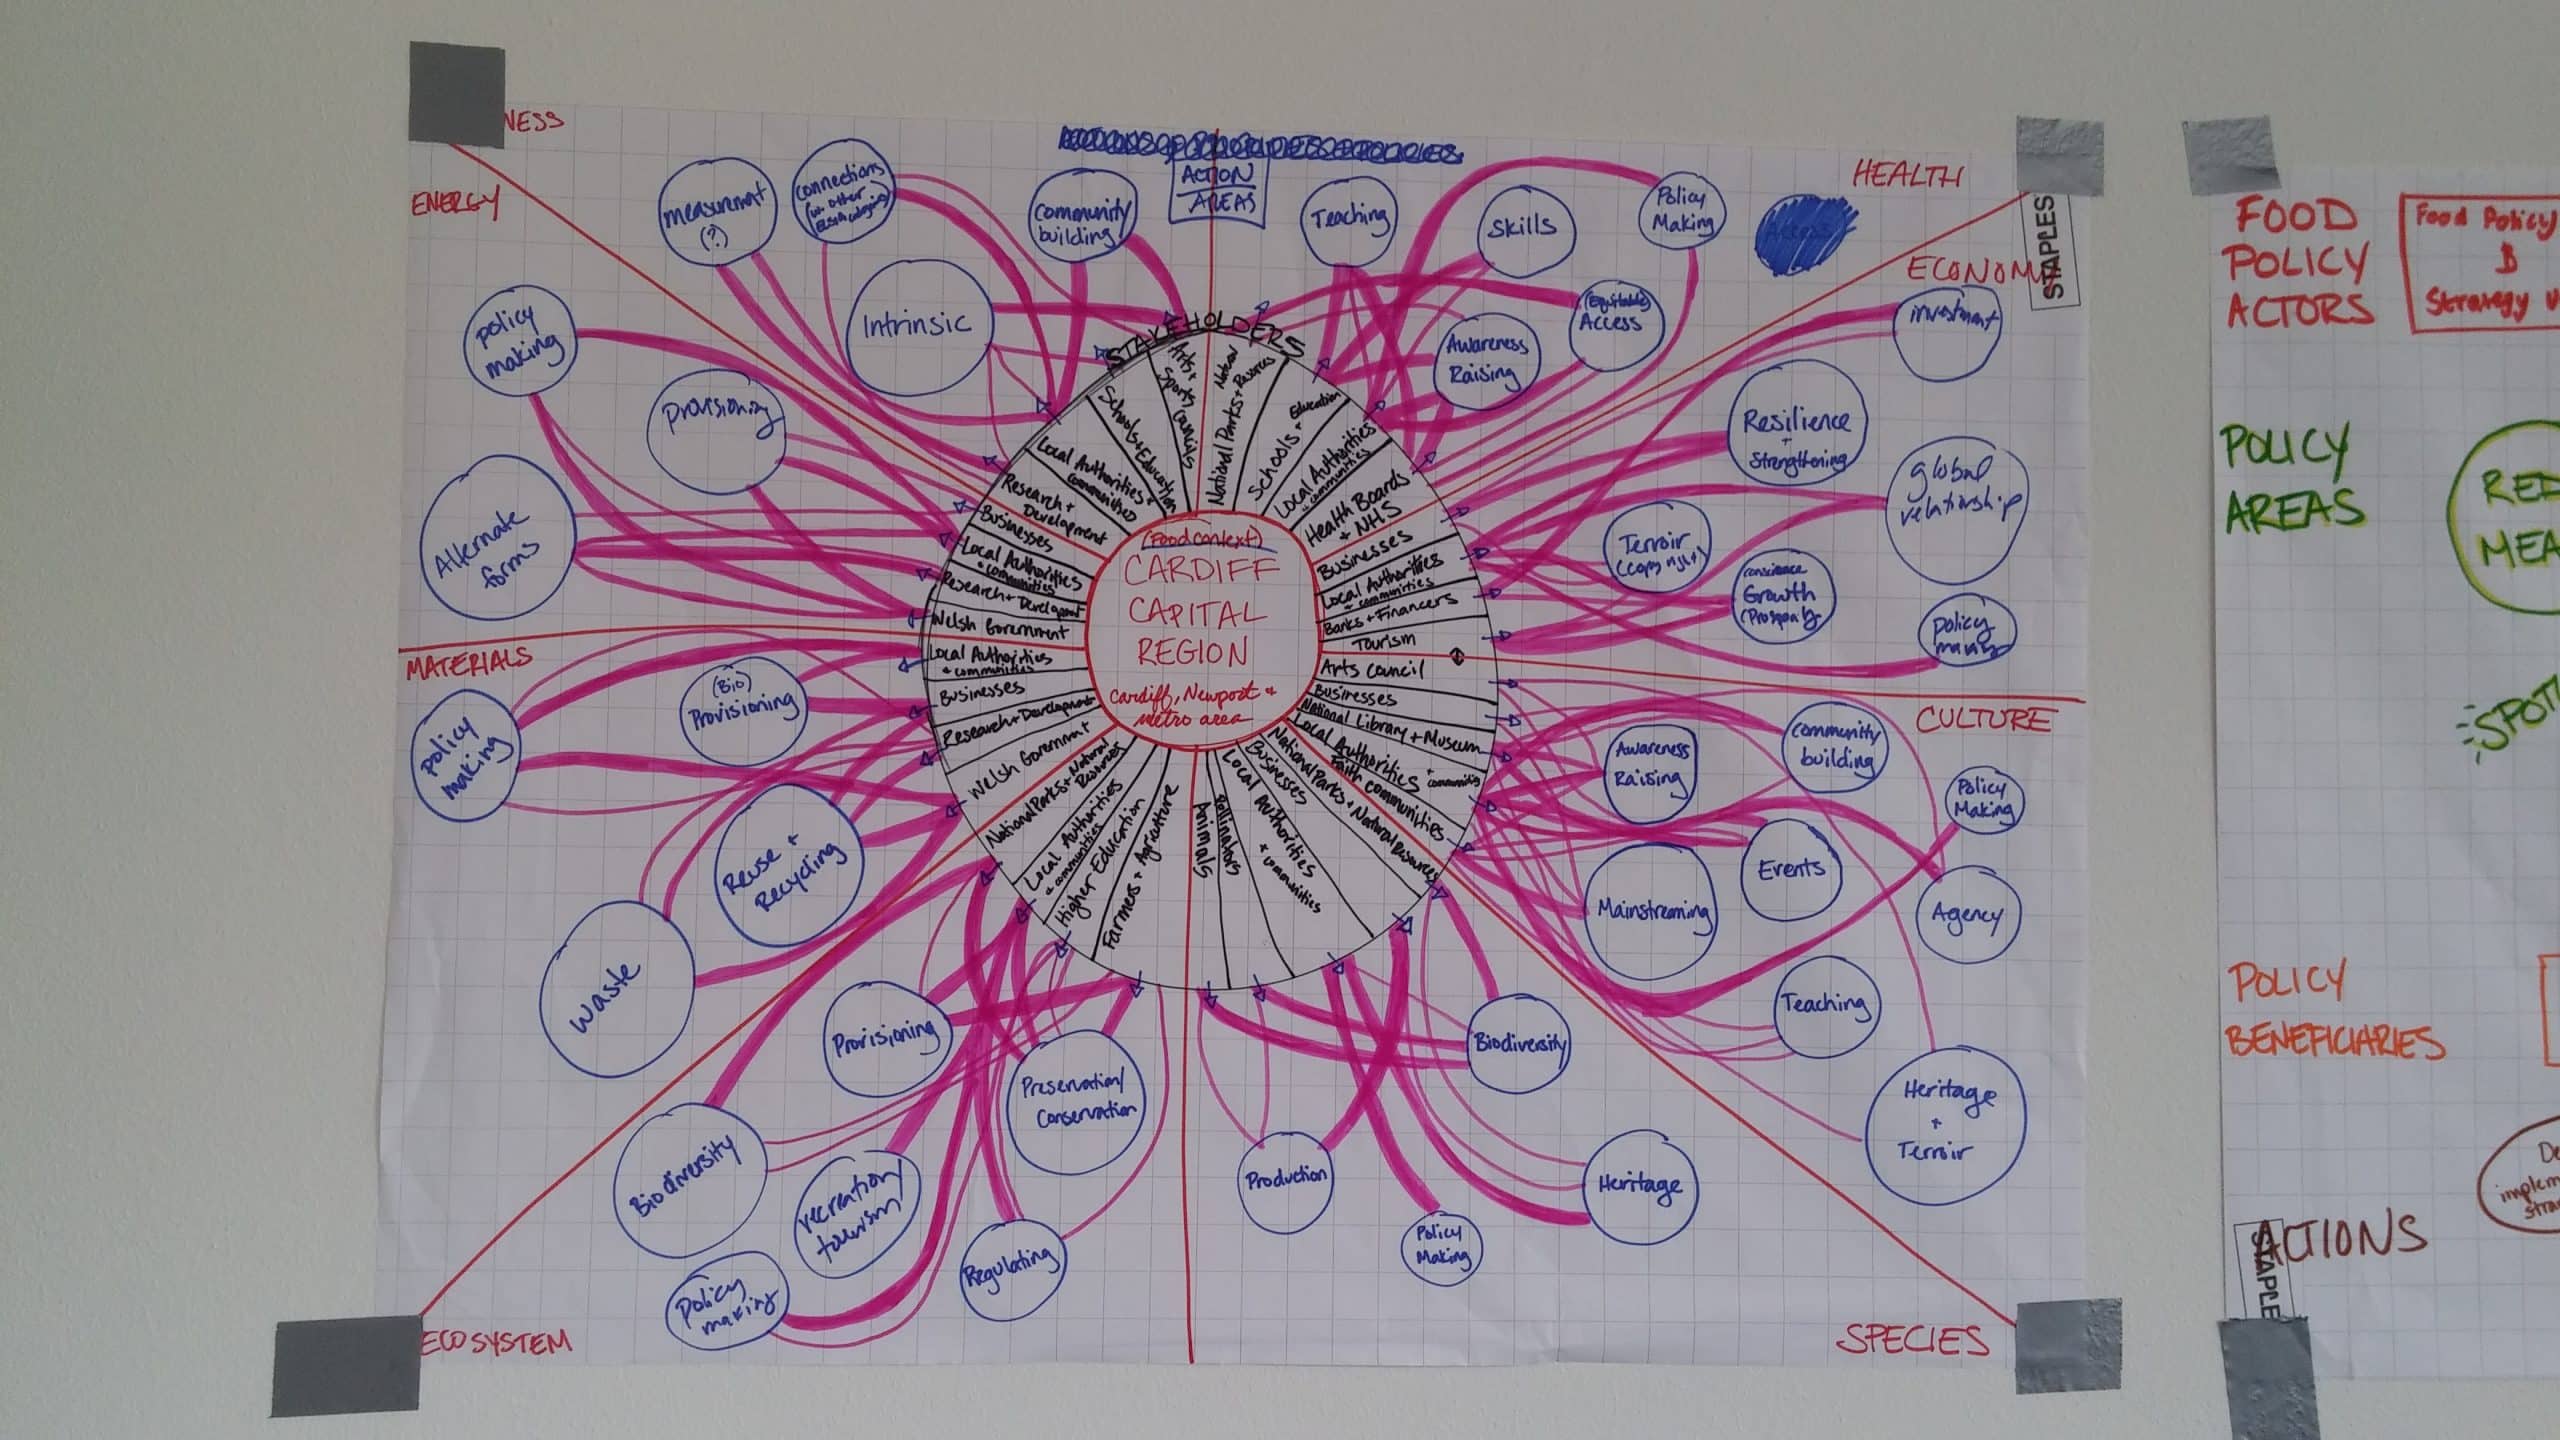 NESS
ENERGY
measurement
(?)
connections
community
building
ACTION
AREAS
Teaching
Skills
Policy
Making
HEALTH
ECONOM
STAPLES
Intrinsic
(Equitable)
Access
Awareness
Raising
investment
policy
making
Provisioning
Alternate
forms
Resilience
+
Strengthening
global
relationship
Terroir
Growth
policy
making
STAKEHOLDERS
Local Authorities +
communities
Schools + Education
Arts +
Sports
Councils
National Parks +
Natural
Resources
Schools +
Education
Local Authorities
+ communities
Health Boards
+ NHS
Research +
Development
Businesses
Local Authorities
+ communities
Research + Development
Welsh Government
Businesses
Local Authorities
+ communities
Banks + Financers
Tourism
(Food context)
CARDIFF
CAPITAL
REGION
Cardiff, Newport +
Metro area
MATERIALS
policy
making
(Bio)
Provisioning
Reuse +
Recycling
Waste
Local Authorities
+ communities
Businesses
Research + Development
Welsh Government
Arts Council
Businesses
National Library + Museum
Local Authorities
+ communities
Faith communities
CULTURE
Awareness
Raising
community
building
Policy
Making
Events
Mainstreaming
Agency
Teaching
Heritage
+
Terroir
National Parks + Natural
Resources
Local Authorities
+ communities
Higher Education
Farmers + Agriculture
Animals
Pollinators
Local Authorities
+ communities
Businesses
National Parks + Natural Resources
Provisioning
Preservation/
Conservation
Biodiversity
recreation/
tourism
Policy
making
Regulating
ECOSYSTEM
Biodiversity
Production
Heritage
Policy
Making
SPECIES
FOOD
POLICY
ACTORS
Food Policy
Strategy
POLICY
AREAS
RED
MEA
SPOT
POLICY
BENEFICIARIES
De
implem
stra
ACTIONS
STAPLE